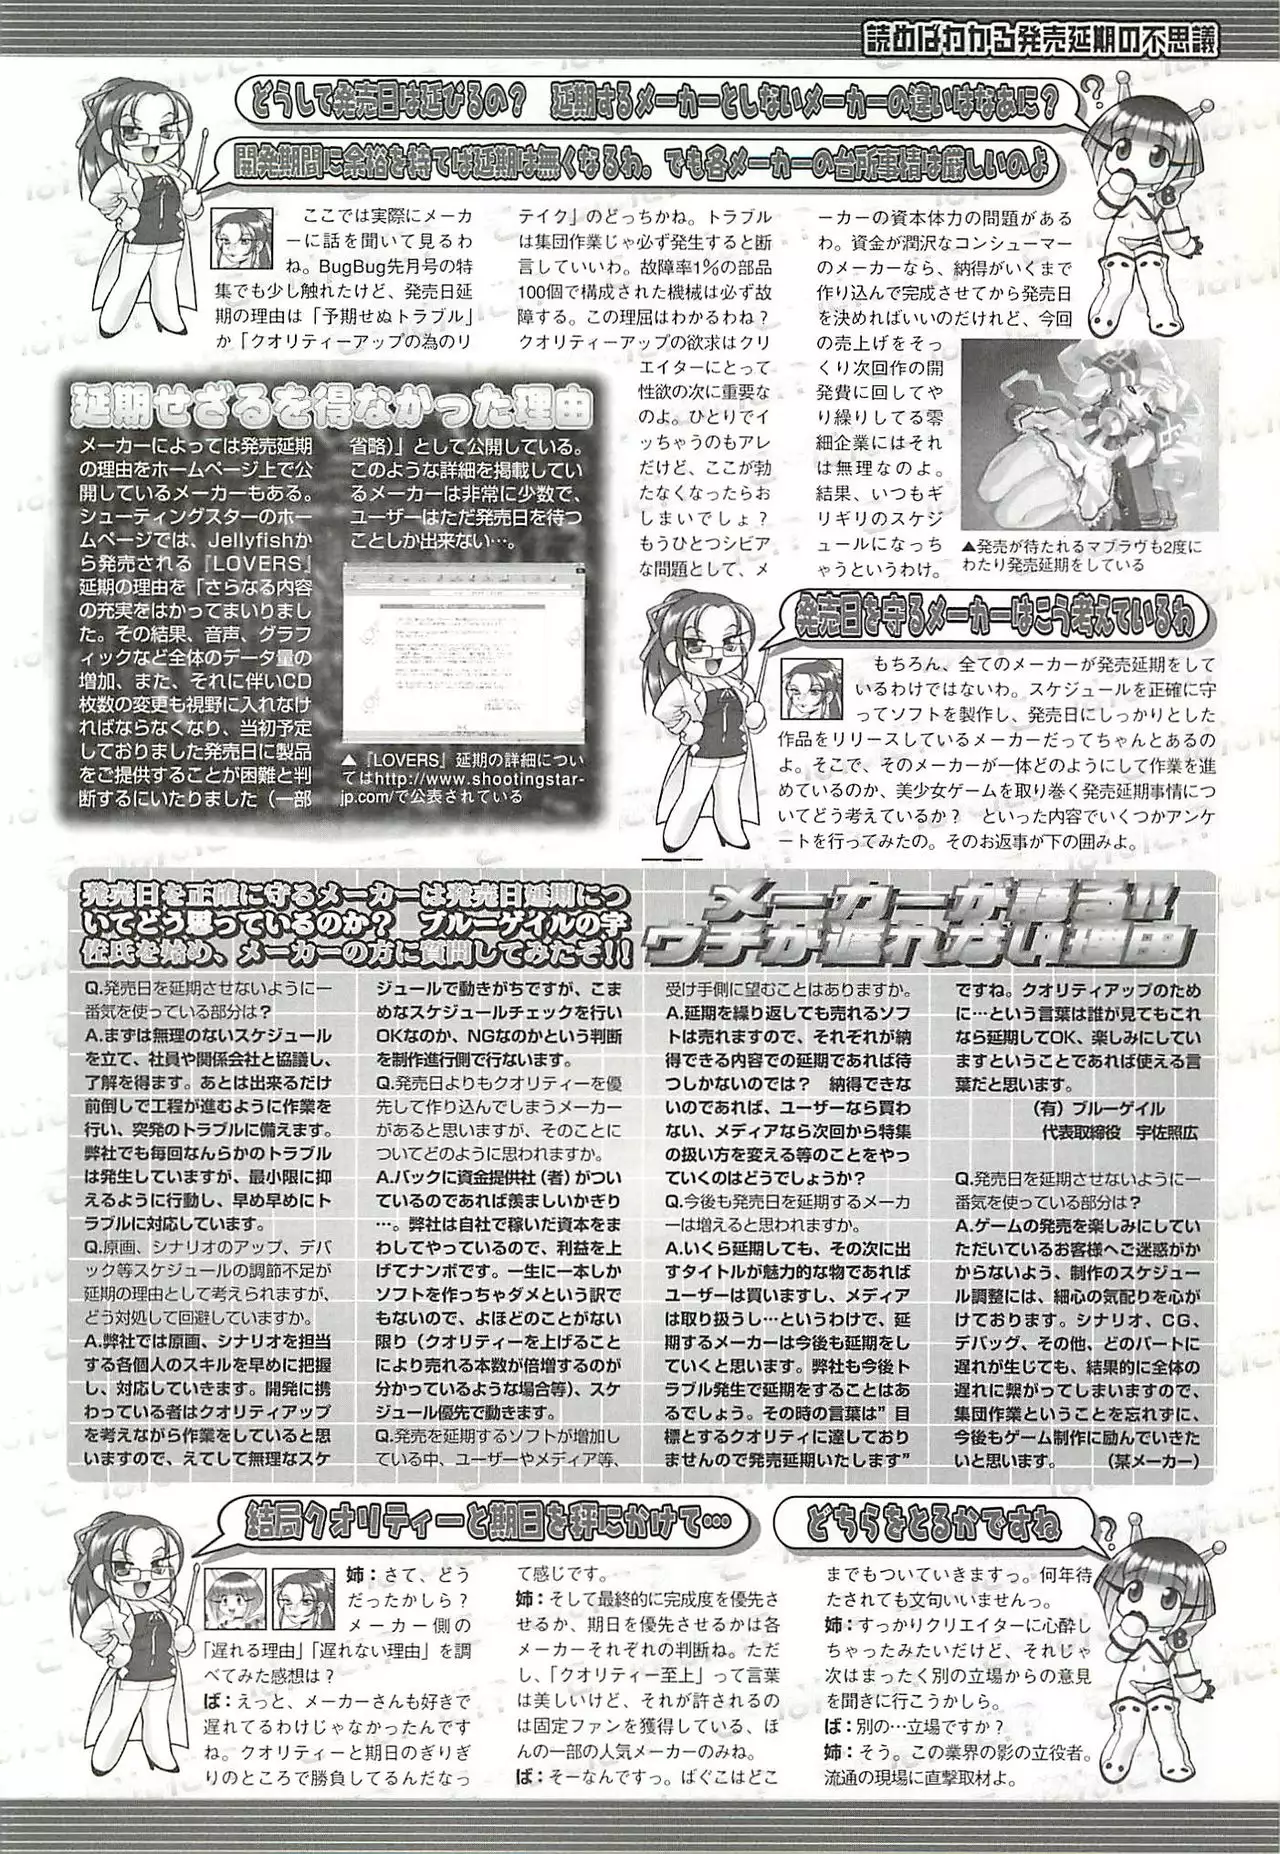 読めばわかる発売延期の不思議
どうして発売日は延びるの？　延期するメーカーとしないメーカーの違いはなあに？
開発期間に余裕を持てば延期は無くなるわ。でも各メーカーの台所事情は厳しいのよ
ここでは実際にメーカ
ーに話を聞いて見るわ
ね。BugBug先月号の特
集でも少し触れたけど、発売日延
期の理由は「予期せぬトラブル」
か「クオリティーアップの為のリ
テイク」のどっちかね。トラブル
は集団作業じゃ必ず発生すると断
言していいわ。故障率1％の部品
100個で構成された機械は必ず故
障する。この理屈はわかるわね？
クオリティーアップの欲求はクリ
エイターにとって
性欲の次に重要な
のよ。ひとりでイ
ッちゃうのもアレ
だけど、ここが勃
たなくなったらお
しまいでしょ？
もうひとつシビア
な問題として、メ
ーカーの資本体力の問題がある
わ。資金が潤沢なコンシューマー
のメーカーなら、納得がいくまで
作り込んで完成させてから発売日
を決めればいいのだけれど、今回
の売上げをそっ
くり次回作の開
発費に回してや
り繰りしてる零
細企業にはそれ
は無理なのよ。
結果、いつもギ
リギリのスケジ
ュールになっち
ゃうというわけ。
▲発売が待たれるマブラヴも2度に
わたり発売延期をしている
延期せざるを得なかった理由
メーカーによっては発売延期
の理由をホームページ上で公
開しているメーカーもある。
シューティングスターのホー
ムページでは、Jellyfishか
ら発売される『LOVERS』
延期の理由を「さらなる内容
の充実をはかってまいりまし
た。その結果、音声、グラフ
ィックなど全体のデータ量の
増加、また、それに伴いCD
枚数の変更も視野に入れなけ
ればならなくなり、当初予定
しておりました発売日に製品
をご提供することが困難と判
断するにいたりました（一部
省略）」として公開している。
このような詳細を掲載してい
るメーカーは非常に少数で、
ユーザーはただ発売日を待つ
ことしか出来ない…。
▲『LOVERS』延期の詳細につい
てはhttp://www.shootingstar-
jp.com/で公表されている
発売日を守るメーカーはこう考えているわ
もちろん、全てのメーカーが発売延期をして
いるわけではないわ。スケジュールを正確に守
ってソフトを製作し、発売日にしっかりとした
作品をリリースしているメーカーだってちゃんとあるの
よ。そこで、そのメーカーが一体どのようにして作業を進
めているのか、美少女ゲームを取り巻く発売延期事情につ
いてどう考えているか？　といった内容でいくつかアンケ
ートを行ってみたの。そのお返事が下の囲みよ。
発売日を正確に守るメーカーは発売日延期につ
いてどう思っているのか？　ブルーゲイルの宇
佐氏を始め、メーカーの方に質問してみたぞ!!
メーカーが語る!!
ウチが遅れない理由
Q.発売日を延期させないように一
番気を使っている部分は？
A.まずは無理のないスケジュール
を立て、社員や関係会社と協議し、
了解を得ます。あとは出来るだけ
前倒しで工程が進むように作業を
行い、突発のトラブルに備えます。
弊社でも毎回なんらかのトラブル
は発生していますが、最小限に抑
えるように行動し、早め早めにト
ラブルに対応しています。
Q.原画、シナリオのアップ、デバ
ック等スケジュールの調節不足が
延期の理由として考えられますが、
どう対処して回避していますか。
A.弊社では原画、シナリオを担当
する各個人のスキルを早めに把握
し、対応していきます。開発に携
わっている者はクオリティアップ
を考えながら作業をしていると思
いますので、えてして無理なスケ
ジュールで動きがちですが、こま
めなスケジュールチェックを行い
OKなのか、NGなのかという判断
を制作進行側で行ないます。
Q.発売日よりもクオリティーを優
先して作り込んでしまうメーカー
があると思いますが、そのことに
ついてどのように思われますか。
A.バックに資金提供社（者）がつい
ているのであれば羨ましいかぎり
…。弊社は自社で稼いだ資本をま
わしてやっているので、利益を上
げてナンボです。一生に一本しか
ソフトを作っちゃダメという訳で
もないので、よほどのことがない
限り（クオリティーを上げること
により売れる本数が倍増するのが
分かっているような場合等）、スケ
ジュール優先で動きます。
Q.発売を延期するソフトが増加し
ている中、ユーザーやメディア等、
受け手側に望むことはありますか。
A.延期を繰り返しても売れるソフ
トは売れますので、それぞれが納
得できる内容での延期であれば待
つしかないのでは？　納得できな
いのであれば、ユーザーなら買わ
ない、メディアなら次回から特集
の扱い方を変える等のことをやっ
ていくのはどうでしょうか？
Q.今後も発売日を延期するメーカ
ーは増えると思われますか。
A.いくら延期しても、その次に出
すタイトルが魅力的な物であれば
ユーザーは買いますし、メディア
は取り扱うし…というわけで、延
期するメーカーは今後も延期をし
ていくと思います。弊社も今後ト
ラブル発生で延期をすることはあ
るでしょう。その時の言葉は"目
標とするクオリティに達しており
ませんので発売延期いたします"
ですね。クオリティアップのため
に…という言葉は誰が見てもこれ
なら延期してOK、楽しみにしてい
ますということであれば使える言
葉だと思います。
（有）ブルーゲイル
代表取締役　宇佐照広
Q.発売日を延期させないように一
番気を使っている部分は？
A.ゲームの発売を楽しみにしてい
ただいているお客様へご迷惑がか
からないよう、制作のスケジュー
ル調整には、細心の気配りを心が
けております。シナリオ、CG、
デバッグ、その他、どのパートに
遅れが生じても、結果的に全体の
遅れに繋がってしまいますので、
集団作業ということを忘れずに、
今後もゲーム制作に励んでいきた
いと思います。　（某メーカー）
結局クオリティーと期日を秤にかけて…
どちらをとるかですね
姉：さて、どう
だったかしら？
メーカー側の
「遅れる理由」「遅れない理由」を調
べてみた感想は？
ば：えっと、メーカーさんも好きで
遅れてるわけじゃなかったんです
ね。クオリティーと期日のぎりぎ
りのところで勝負してるんだなっ
て感じです。
姉：そして最終的に完成度を優先さ
せるか、期日を優先させるかは各
メーカーそれぞれの判断ね。ただ
し、「クオリティー至上」って言葉
は美しいけど、それが許されるの
は固定ファンを獲得している、ほ
んの一部の人気メーカーのみね。
ば：そーなんですっ。ばぐこはどこ
までもついていきますっ。何年待
たされても文句いいませんっ。
姉：すっかりクリエイターに心酔し
ちゃったみたいだけど、それじゃ
次はまったく別の立場からの意見
を聞きに行こうかしら。
ば：別の…立場ですか？
姉：そう。この業界の影の立役者。
流通の現場に直撃取材よ。